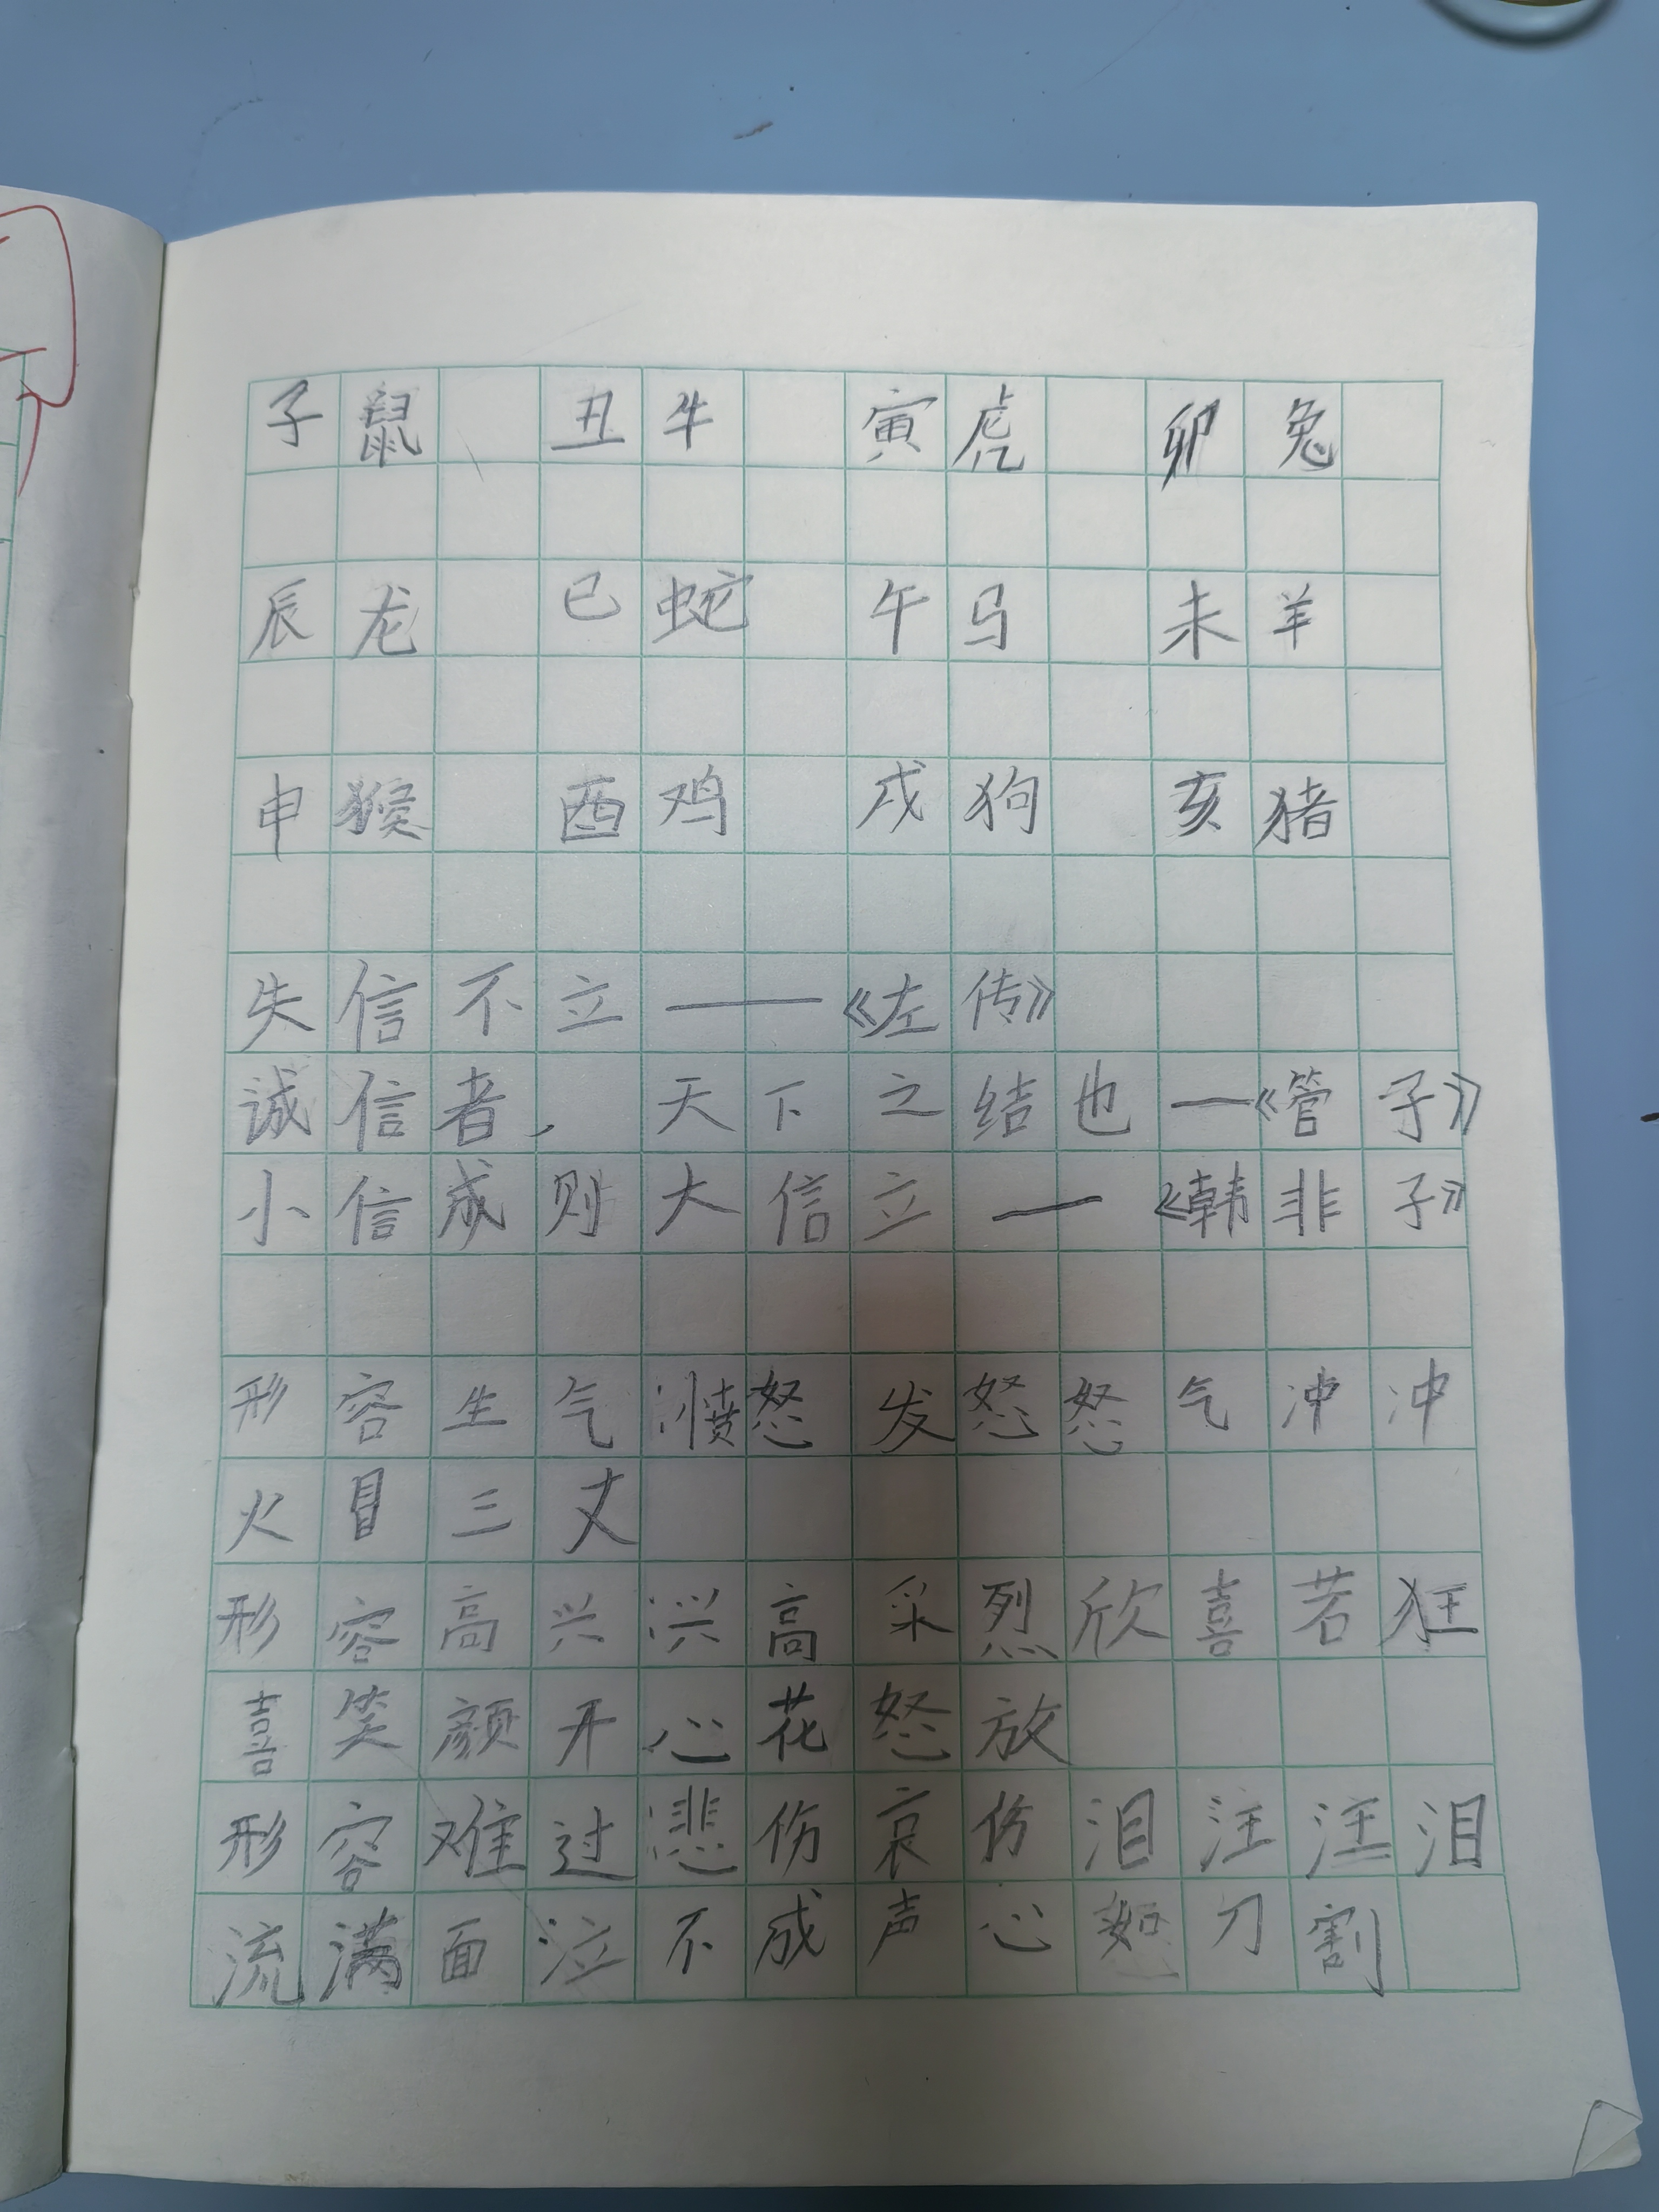 子鼠 丑牛 寅虎 卯兔
辰龙 巳蛇 午马 未羊
申猴 酉鸡 戌狗 亥猪
失信不立——《左传》
诚信者，天下之结也—《管子》
小信成则大信立—《韩非子》
形容生气:愤怒 发怒 怒气冲冲
火冒三丈
形容高兴:兴高采烈欣喜若狂
喜笑颜开心花怒放
形容难过:悲伤哀伤泪汪汪泪
流满面泣不成声心如刀割